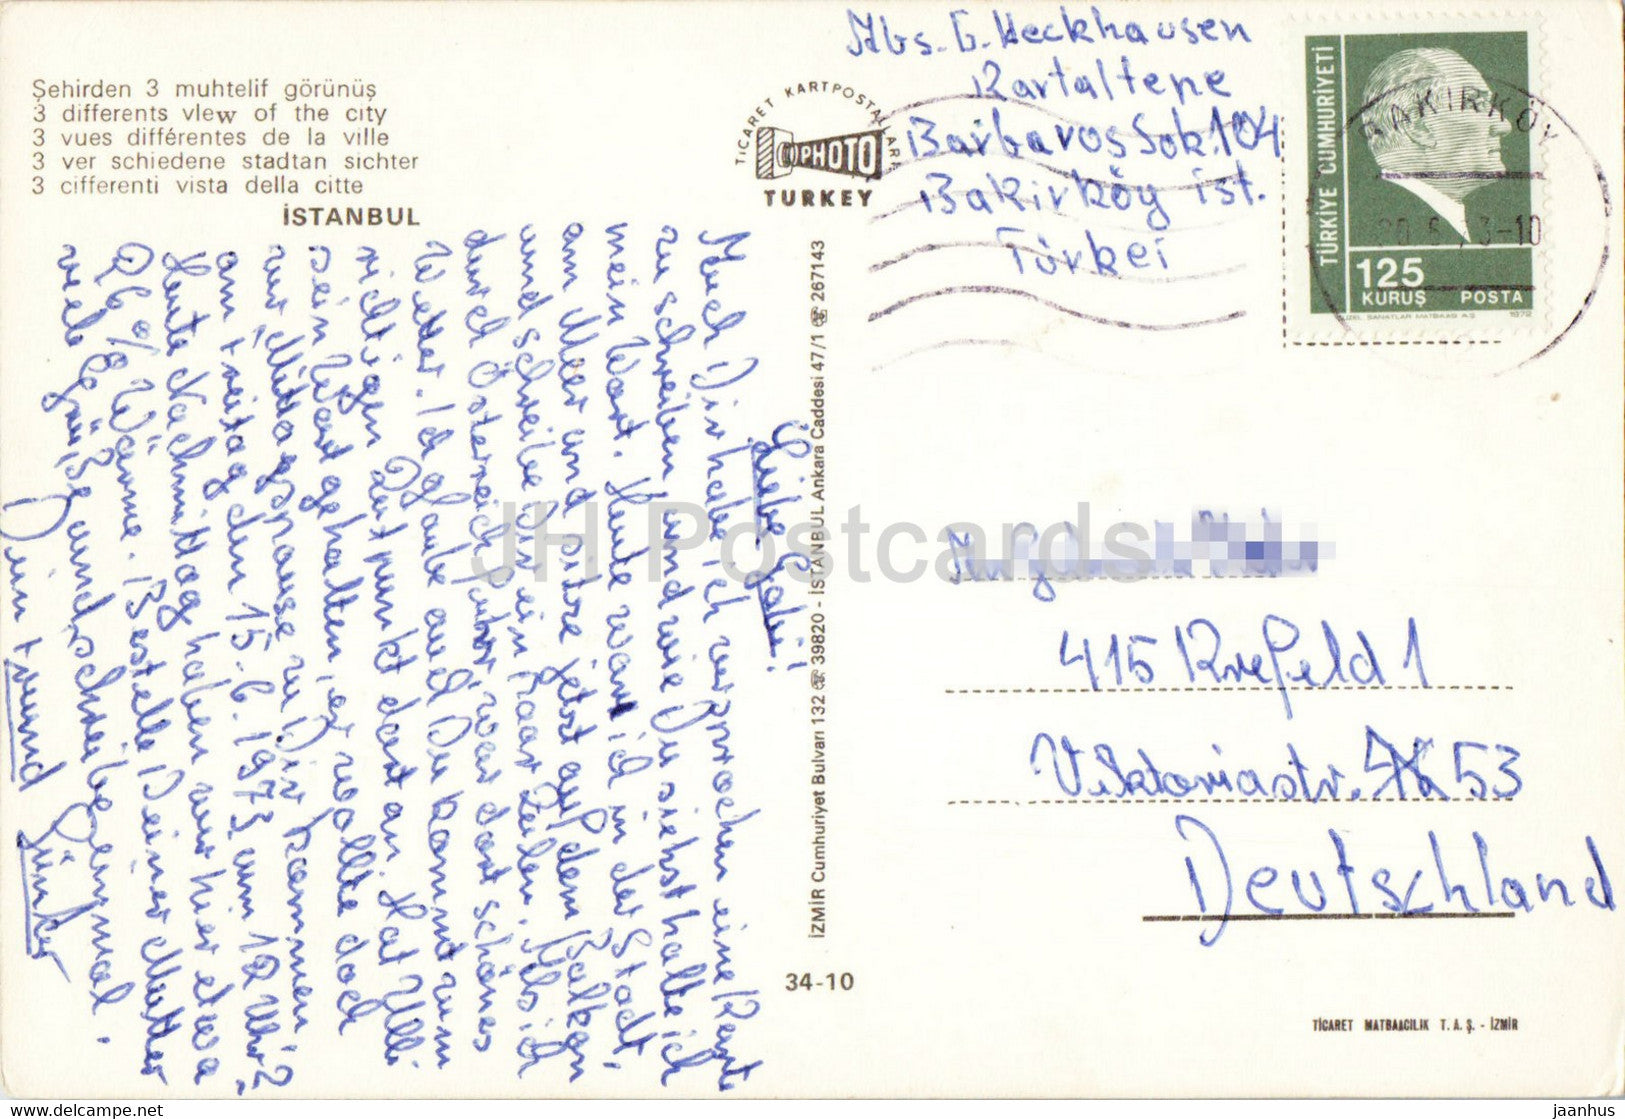 Şehirden 3 muhtelif görünüş
3 differents vlew of the city
3 vues différentes de la ville
3 ver schiedene stadtan sichter
3 cifferenti vista della citte
İSTANBUL
TİCARET KARTPOSTALLARI
PHOTO
TURKEY
Abs. G. Heckhausen
Kartaltepe
Barbaros Sok. 104
Bakirköy ist.
Türkei
TÜRKİYE CUMHURİYETİ
125
KURUŞ POSTA
GÜZEL SANATLAR MATBAASI A.Ş. 1972
BAKIRKÖY
Liebe Gabi!
Auch Dir habe ich versprochen eine Karte
zu schreiben und wie Du siehst halte ich
mein Wort. Heute war ich in der Stadt
am Meer und sitze jetzt auf dem Balkon
und schreibe Dir ein paar Zeilen. Als ich
durch Österreich fuhr war dort schönes
Wetter. Ich glaube auch Du kommst zum
richtigen Zeitpunkt dort an. Hat Ulli
sein Wort gehalten, er wollte doch
zur Mittagspause zu Dir kommen
am Freitag den 15.6.1973 um 12 Uhr?
Heute Nachmittag haben wir hier etwa
26° Wärme. Bestelle Deiner Mutter
viele Grüße und schreibe einmal.
Dein Freund Günter
İZMİR Cumhuriyet Bulvarı 132 ☎ 39820 - İSTANBUL Ankara Caddesi 47/1 ☎ 267143
34-10
415 Krefeld 1
Viktoriastr. 53
Deutschland
TİCARET MATBAACILIK T. A. Ş. - İZMİR
JH Postcards
https://www.delcampe.net
jaanhus